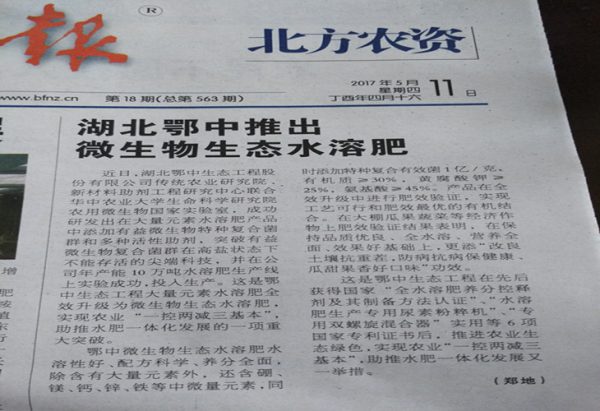 报
®
北方农资
www.bfnz.cn
第18期(总第563期)
2017年5月
星期四
丁酉年四月十六
11日
湖北鄂中推出
微生物生态水溶肥
近日,湖北鄂中生态工程股
份有限公司传统农业研究院、
新材料助剂工程研究中心联合
华中农业大学生命科学研究院
农用微生物国家实验室,成功
研发出在大量元素水溶肥产品
中添加有益微生物特种复合菌
群和多种活性助剂,突破有益
微生物复合菌群在高盐状态下
不能存活的尖端科技,并在公
司年产能10万吨水溶肥生产线
上实验成功,投入生产。这是鄂
中生态工程大量元素水溶肥全
效升级为微生物生态水溶肥,
实现农业“一控两减三基本”,
助推水肥一体化发展的一项重
大突破。
鄂中微生物生态水溶肥水
溶性好、配方科学、养分全面,
除含有大量元素外,还含硼、
镁、钙、锌、铁等中微量元素,同
时添加特种复合有效菌1亿/克,
有机质≥30%,黄腐酸钾≥
25%,氨基酸≥45%。产品在全
效升级中进行肥效验证,实现
工艺可行和肥效最优的有机结
合。在大棚瓜果蔬菜等经济作
物上肥效验证结果表明,在保
持品质优良、全水溶、营养全
面、效果好基础上,更添“改良
土壤抗重茬,防病抗病保健康、
瓜甜果香好口味”功效。
这是鄂中生态工程在先后
获得国家“全水溶肥养分控释
剂及其制备方法认证”、“水溶
肥生产专用尿素粉粹机”、“专
用双螺旋混合器”实用等6项
国家专利证书后,推进农业生
态绿色,实现农业“一控两减三
基本”,助推水肥一体化发展又
一举措。
(郑地)
增